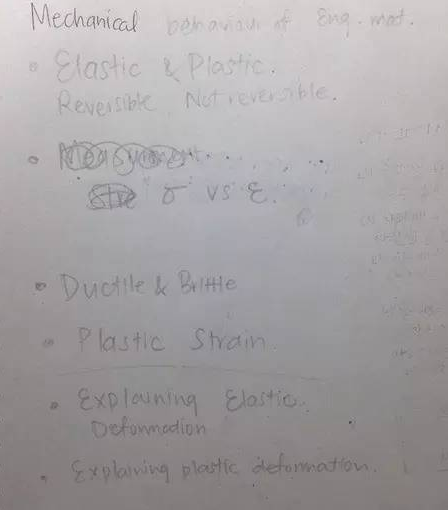 Mechanical behaviour of Eng. mat.
• Elastic & Plastic.
Reversible Not reversible.
• Measurement
σ vs ε.
• Ductile & Brittle
• Plastic Strain
• Explaining Elastic.
Deformation
• Explaining plastic deformation.